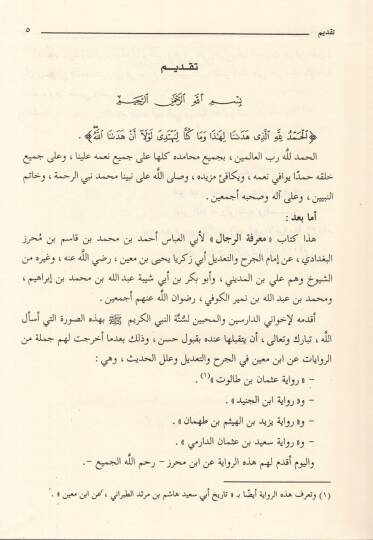 تقديم ٥
تقديم
بِسْمِ اللَّهِ الرَّحْمَنِ الرَّحِيمِ
﴿الْحَمْدُ لِلَّهِ الَّذِي هَدَانَا لِهَذَا وَمَا كُنَّا لِنَهْتَدِيَ لَوْلَا أَنْ هَدَانَا اللَّهُ﴾ .
الحمد للَّه رب العالمين ، بجميع محامده كلها على جميع نعمه علينا ، وعلى جميع
خلقه حمدًا يوافي نعمه ، ويكافئ مزيده ، وصلى اللَّه على نبينا محمد نبي الرحمة ، وخاتم
النبيين ، وعلى آله وصحبه أجمعين .
أما بعد :
هذا كتاب « معرفة الرجال » لأبي العباس أحمد بن محمد بن قاسم بن مُحرز
البغدادي ، عن إمام الجرح والتعديل أبي زكريا يحيى بن معين ، رضي اللَّه عنه ، وغيره من
الشيوخ وهم علي بن المديني ، وأبو بكر بن أبي شيبة عبداللَّه بن محمد بن إبراهيم ،
ومحمد بن عبداللَّه بن نمير الكوفي ، رضوان اللَّه عنهم أجمعين .
أقدمه لإخواني الدارسين والمحبين لسُنَّة النبي الكريم ﷺ بهذه الصورة التي أسأل
اللَّه ، تبارك وتعالى ، أن يتقبلها عنده بقبول حسن ، وذلك بعدما أخرجت لهم جملة من
الروايات عن ابن معين في الجرح والتعديل وعلل الحديث ، وهي :
– « رواية عثمان بن طالوت »(١) .
– و« رواية ابن الجنيد » .
– و« رواية يزيد بن الهيثم بن طهمان » .
– و« رواية سعيد بن عثمان الدارمي » .
واليوم أقدم لهم هذه الرواية عن ابن محرز – رحم اللَّه الجميع – .
(١) وتعرف هذه الرواية أيضًا بـ « تاريخ أبي سعيد هاشم بن مرثد الطبراني ، عن ابن معين » .